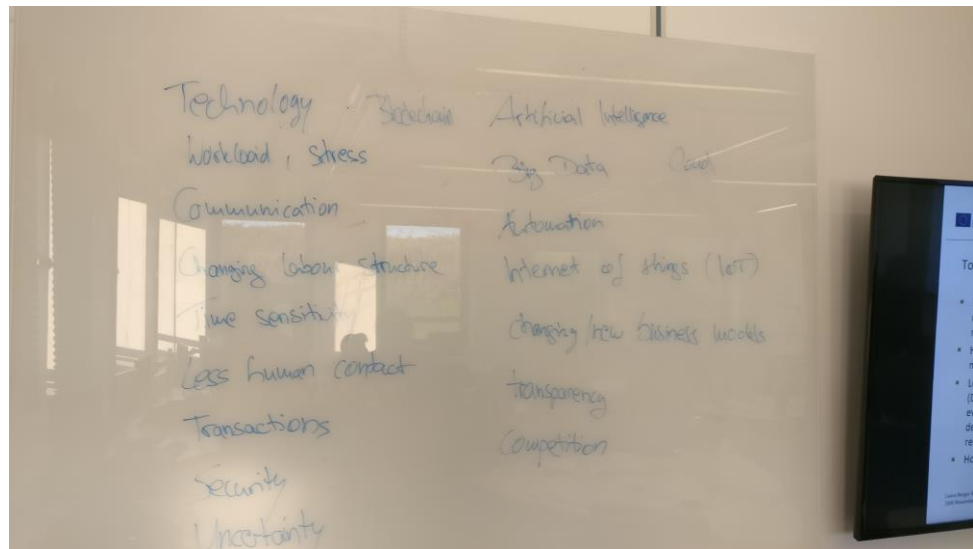 Technology
Blockchain
Workload, stress
Communication
Changing labour structure
Time sensitivity
Less human contact
Transactions
Security
Uncertainty
Artificial Intelligence
Big Data
Cloud
Automation
Internet of things (IoT)
Changing/new business models
transparency
Competition
To